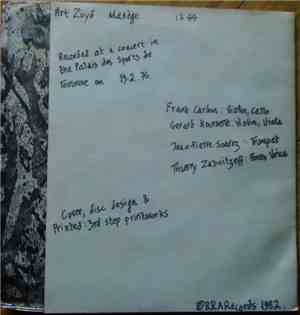 Art Zoyd Manège 12:44
Recorded at a concert in
the Palais des Sports de
Toulouse on 19.2.76
Franck Cardon: Violin, Cello
Gerard Hourbette: Violin, Viola
Jean-Pierre Soarez: Trumpet
Thierry Zaboitzeff: Vocals
Cover, disc design &
Printed: 3rd step printworks
RRARecords 1982